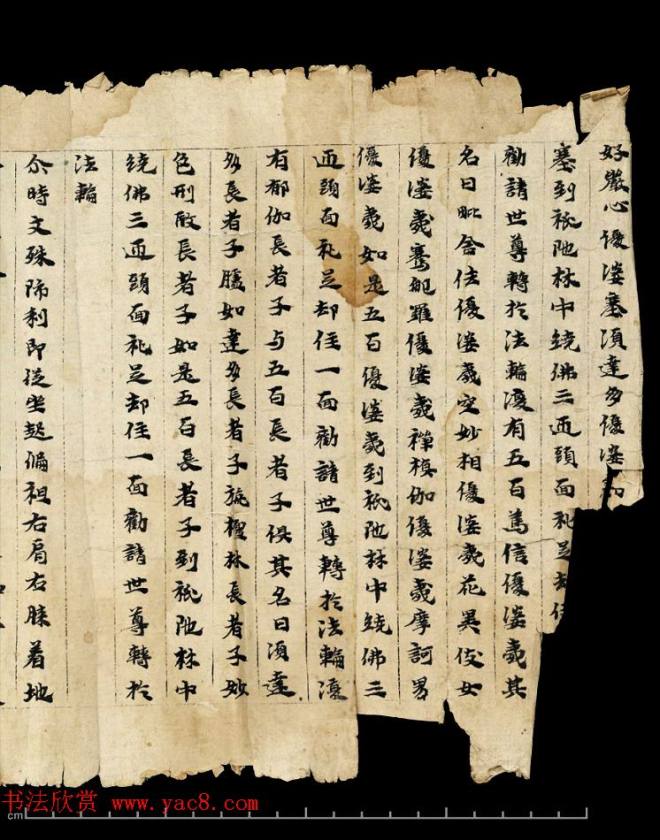 好嚴心優婆塞須達多優婆塞
塞到祇陁林中繞佛三迊頭面礼足却住
勸請世尊轉於法輪復有五百篤信優婆夷其
名曰毗舍佉優婆夷空妙相優婆夷花異女
優婆夷騫馳羅優婆夷禪模伽優婆夷摩訶男
優婆夷如是五百優婆夷到祇陁林中繞佛三
迊頭面礼足却住一面勸請世尊轉於法輪復
有郁伽長者子与五百長者子俱其名曰須達
多長者子如達多長者子旃檀林長者子妙
色形長者子如是五百長者子到祇陁林中
繞佛三迊頭面礼足却住一面勸請世尊轉於
法輪
尒時文殊師利即從坐起偏袒右肩右膝着地
书法欣赏 www.yac8.com
cm